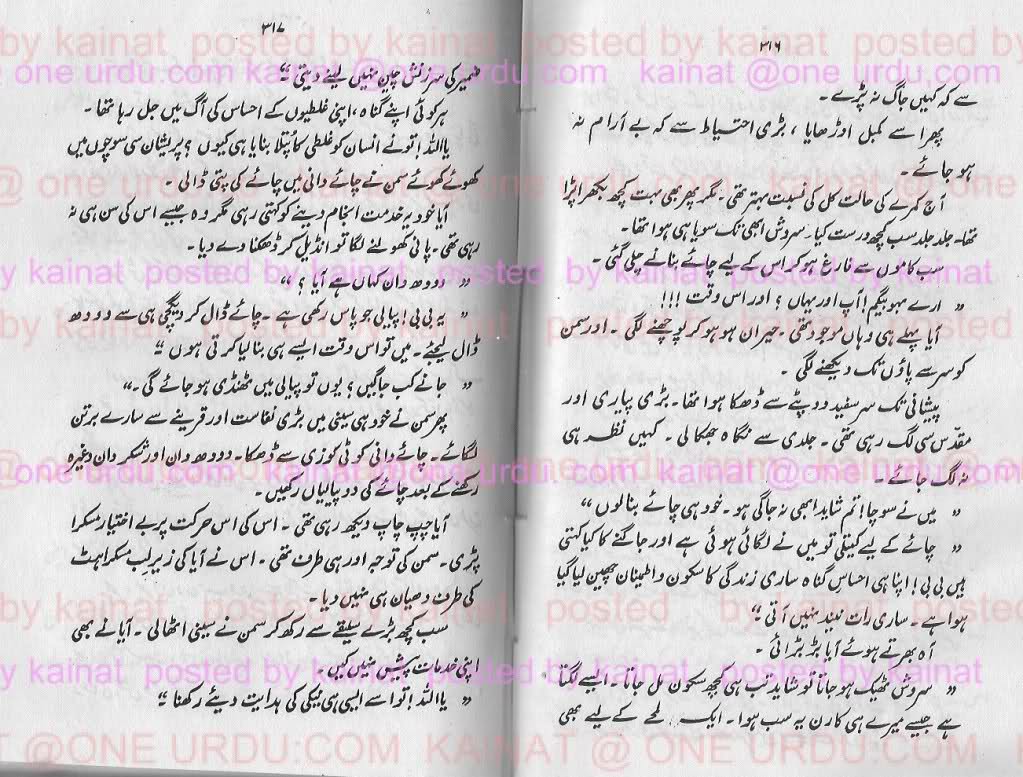 ۳۱۶
سے کہ کہیں جاگ نہ پڑے۔
پھر اسے کمبل اوڑھایا، بڑی احتیاط سے کہ بے آرام نہ
ہو جائے۔
آج کمرے کی حالت کل کی نسبت بہتر تھی۔ مگر پھر بھی بہت کچھ بکھرا پڑا
تھا۔ جلد جلد سب کچھ درست کیا۔ سروش ابھی تک سویا ہی ہوا تھا۔
سب کاموں سے فارغ ہو کر اس کے لیے چائے بنانے چلی گئی۔
” ارے بہو بیگم! آپ اور یہاں؟ اور اس وقت!!!
آیا پہلے ہی وہاں موجود تھی۔ حیران ہو ہو کر پوچھنے لگی۔ اور سمن
کو سر سے پاؤں تک دیکھنے لگی۔
پیشانی تک سر سفید دوپٹے سے ڈھکا ہوا تھا۔ بڑی پیاری اور
مقدّس سی لگ رہی تھی۔ جلدی سے نگاہ جھکا لی۔ کہیں نظر ہی
نہ لگ جائے۔
” میں نے سوچا! تم شاید ابھی نہ جاگی ہو۔ خود ہی چائے بنا لوں “
” چائے کے لیے کیتلی تو میں نے لگائی ہوئی ہے اور جاگنے کا کیا کہتی
ہیں بی بی! اپنا ہی احساسِ گناہ ساری زندگی کا سکون و اطمینان چھین لیا گیا
ہوا ہے۔ ساری رات نیند نہیں آتی “۔
آہ بھرتے ہوئے آیا بڑبڑائی۔
” سروش ٹھیک ہو جاتا تو شاید تب ہی کچھ سکون مل جاتا۔ ایسے لگتا
ہے جیسے میرے ہی کارن یہ سب ہوا۔ ایک لمحے کے لیے بھی
۳۱۷
ضمیر کی سرزنش چین نہیں لینے دیتی “
ہر کوئی اپنے گناہ، اپنی غلطیوں کے احساس کی آگ میں جل رہا تھا۔
یا اللہ! تو نے انسان کو غلطی کا پُتلا بنایا ہی کیوں؟ پریشان سی سوچوں میں
کھوئے کھوئے سمن نے چائے دانی میں چائے کی پتی ڈالی۔
آیا خود یہ خدمت انجام دینے کو کہتی رہی مگر وہ جیسے اس کی سن ہی نہ
رہی تھی۔ پانی کھولنے لگا تو انڈیل کر ڈھکنا دے دیا۔
” دودھ دان کہاں ہے آیا؟ “
” یہ بی بی! پیالی جو پاس رکھی ہے۔ چائے ڈال کر دیگچی ہی سے دودھ
ڈال لیجئے۔ میں تو اس وقت ایسے ہی بنا لیا کرتی ہوں “
” جانے کب جاگیں؟ یوں تو پیالی میں ٹھنڈی ہو جائے گی۔ “
پھر سمن نے خود ہی سینی میں بڑی نفاست اور قرینے سے سارے برتن
لگائے۔ چائے دانی کو ٹی کوزی سے ڈھکا۔ دودھ دان اور شکر دان وغیرہ
رکھنے کے بعد چائے کی دو پیالیاں رکھیں۔
آیا چپ چاپ دیکھ رہی تھی۔ اس کی اس حرکت پر بے اختیار مسکرا
پڑی۔ سمن کی توجہ اور ہی طرف تھی۔ اس نے آیا کی زیرِ لب مسکراہٹ
کی طرف دھیان ہی نہیں دیا۔
سب کچھ بڑے سلیقے سے رکھ کر سمن نے سینی اٹھا لی۔ آیا نے بھی
اپنی خدمات پیش نہیں کیں۔
” یا اللہ! تو اسے ایسی ہی نیکی کی ہدایت دیئے رکھنا “
by kainat posted by kainat posted
@ one urdu com kainat @one urdu com kainat @one urdu com
KAINAT @ONE URDU:COM KAINAT @ ONE URDU:COM